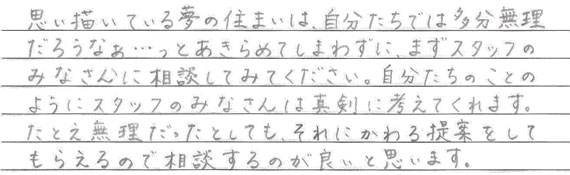 思い描いている夢の住まいは、自分たちでは多分無理
だろうなぁ…っとあきらめてしまわずに、まずスタッフの
みなさんに相談してみてください。自分たちのことの
ようにスタッフのみなさんは真剣に考えてくれます。
たとえ無理だったとしても、それにかわる提案をして
もらえるので相談するのが良いと思います。